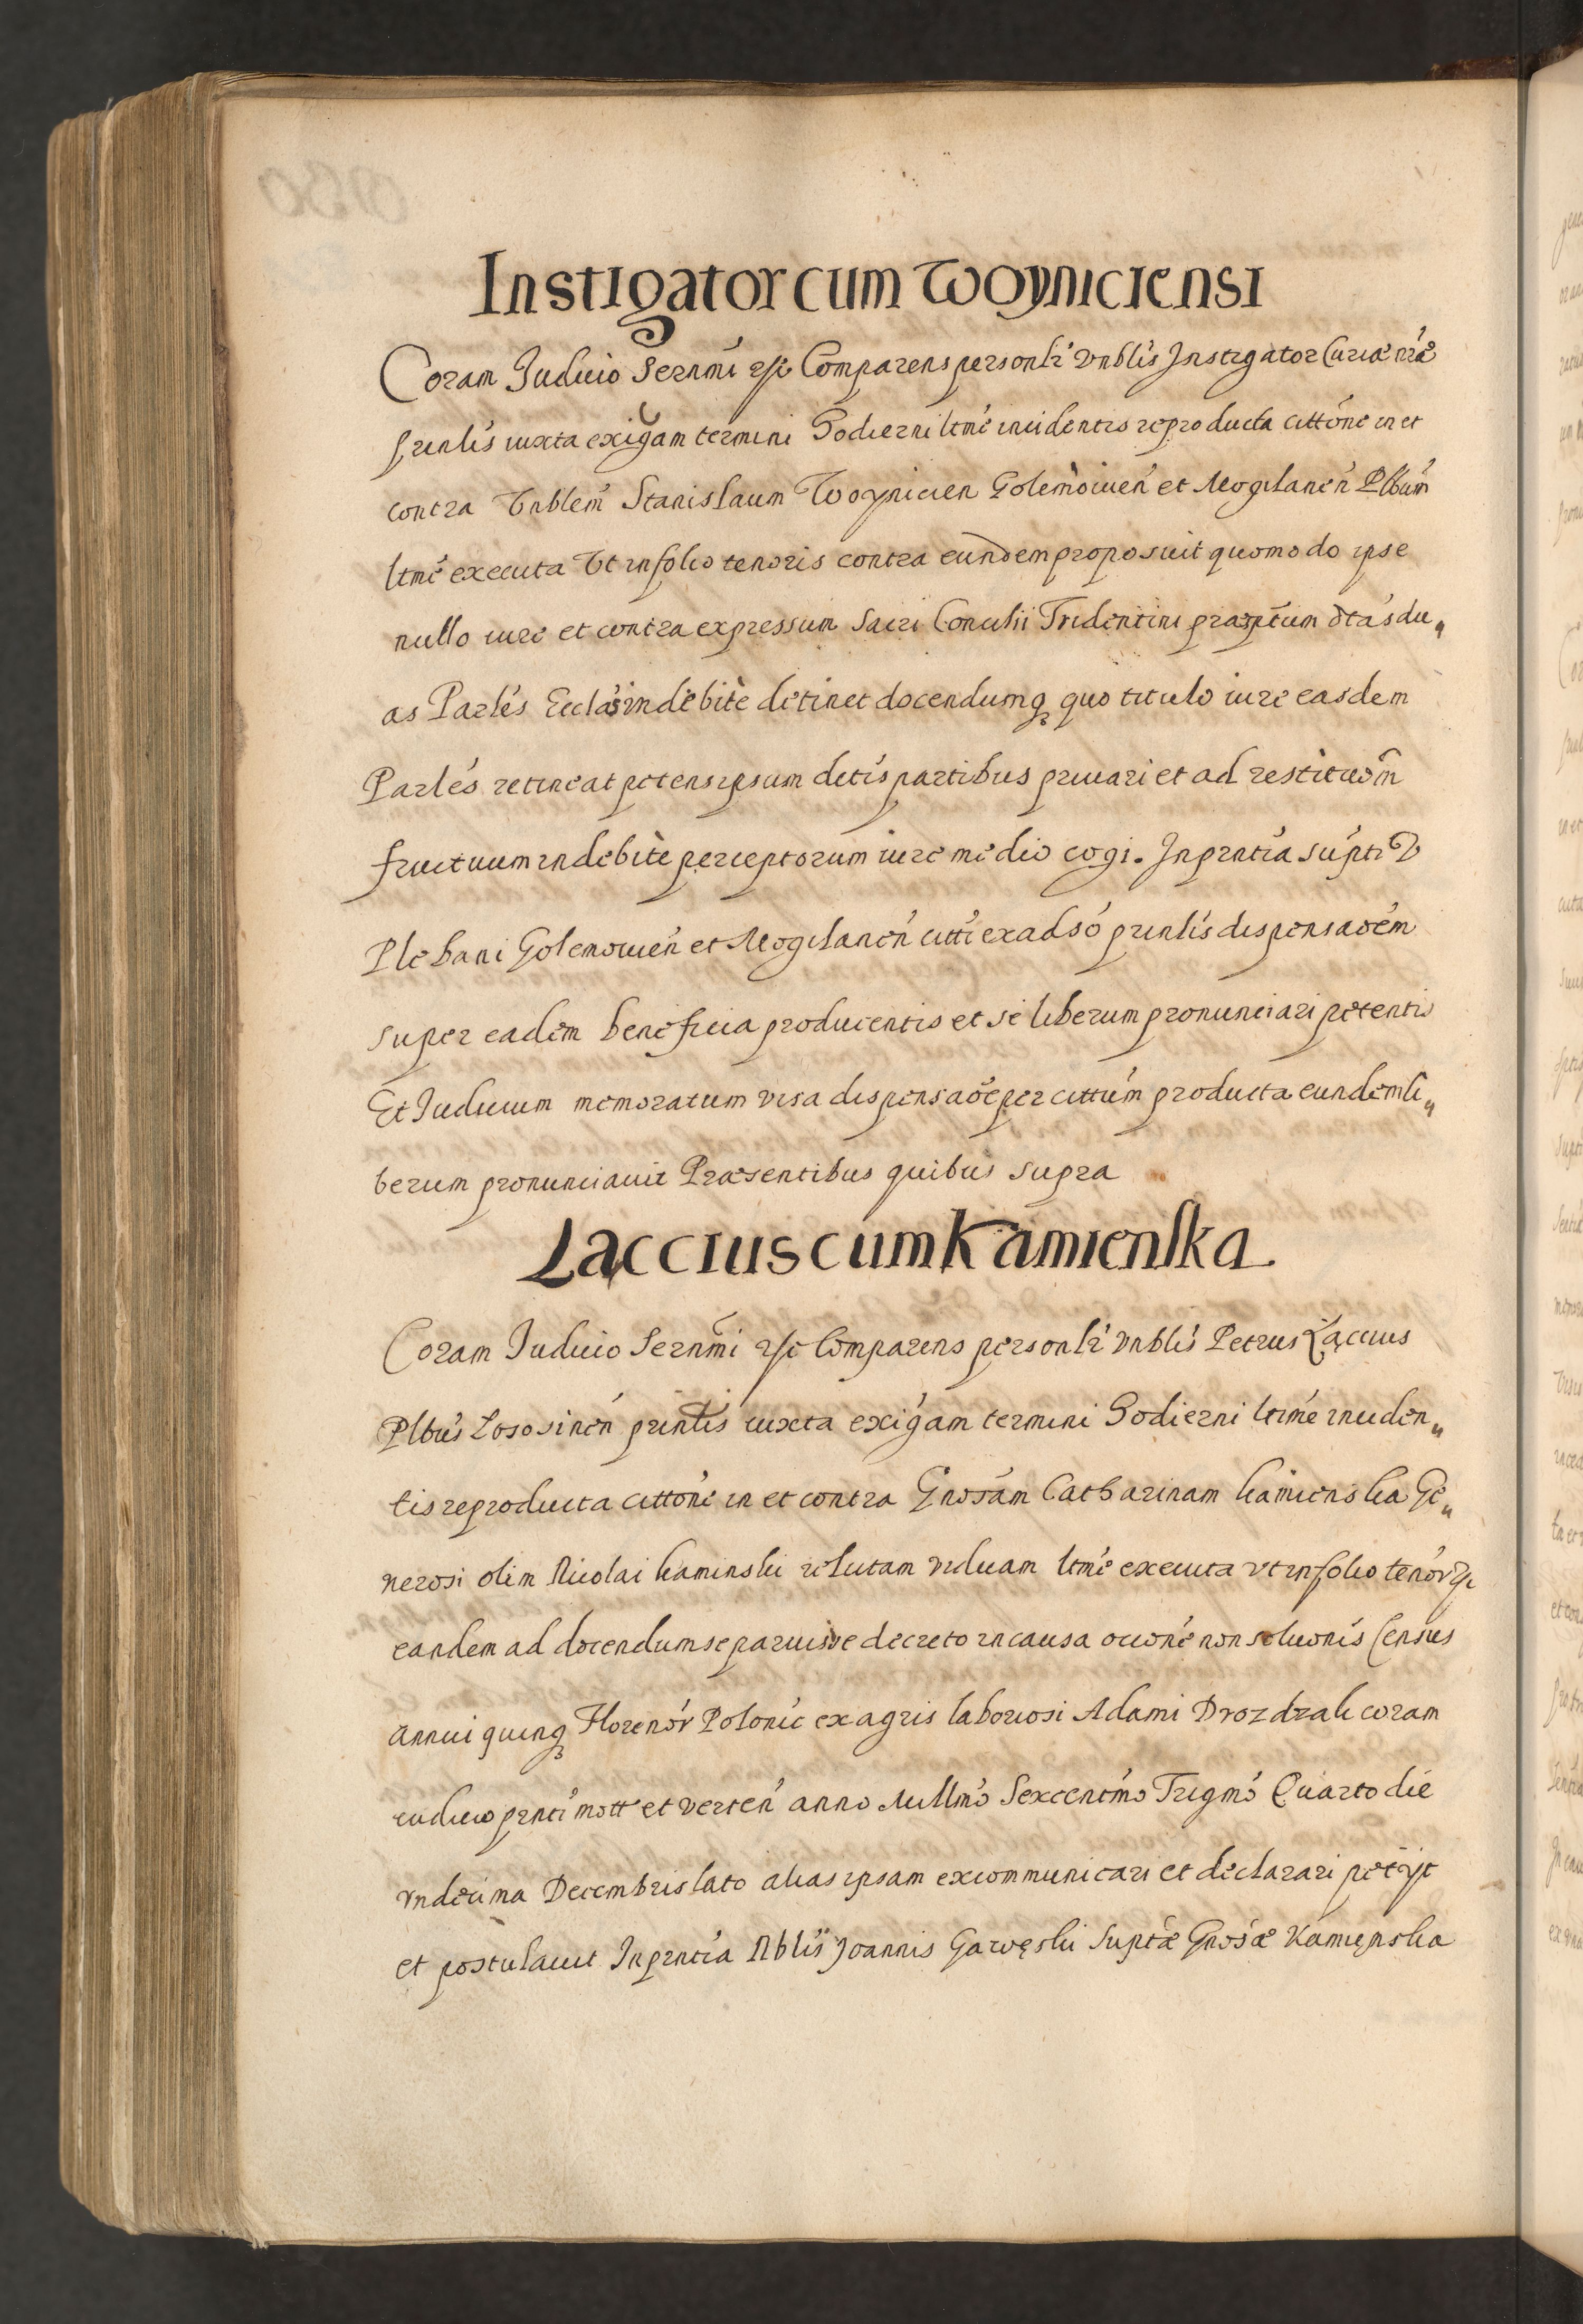 Instigator cum Woyniciensi
Coram Iudicio Sernmi etc Comparens personlr vnblis Instigator Curiæ nræ
prinlis iuxta exigam termini hodierni ltmè incidentis reproducta cittone in et
contra Vnblem Stanislaum Woynicien Golemowien et Mogilanen Plbum
ltmè executa Vt in folio tenoris contra eundem proposuit quomodo ipse
nullo iure et contra expressum Sacri Concilii Tridentini præptum dtas du„
as Parles Ecclas indebitè detinet docendumq quo titulo iure easdem
Parles retineat petens ipsum dictis partibus priuari et ad restituom
fructuum indebitè perceptorum iure medio cogi. In prntia supti V
Plebani Golemowien et Mogilanen citti ex adso prinlis dispensaoem
super eadem beneficia producentis et se liberum pronunciari petentis
Et Iudicium memoratum visa dispensaoe per cittum producta eundem li„
berum pronunciauit Præsentibus quibus supra
Laccius cum Kamienska
Coram Iudicio Sernmi etc Comparens personlr vnblis Petrus Łąccius
Plbus Lososinen prinlis iuxta exigam termini hodierni ltimè inciden„
tis reproducta cittone in et contra Gnosam Catharinam kamienska Ge„
nerosi olim Nicolai kaminski relictam viduam ltmè executa vt in folio tenor
eandem ad docendum se paruisse decreto in causa ocione non soluonis Census
annui quinq Florenor Polonic ex agris laboriosi Adami Drozdzak coram
iudicio prnti mott et verten anno Millmo Sexcentmo Trigmo Quarto die
vndecima Decembris lato alias ipsam excommunicari et declarari petijt
et postulauit In prntia Nblis Joannis Gawęski Suptæ Gnosæ Kamięnska